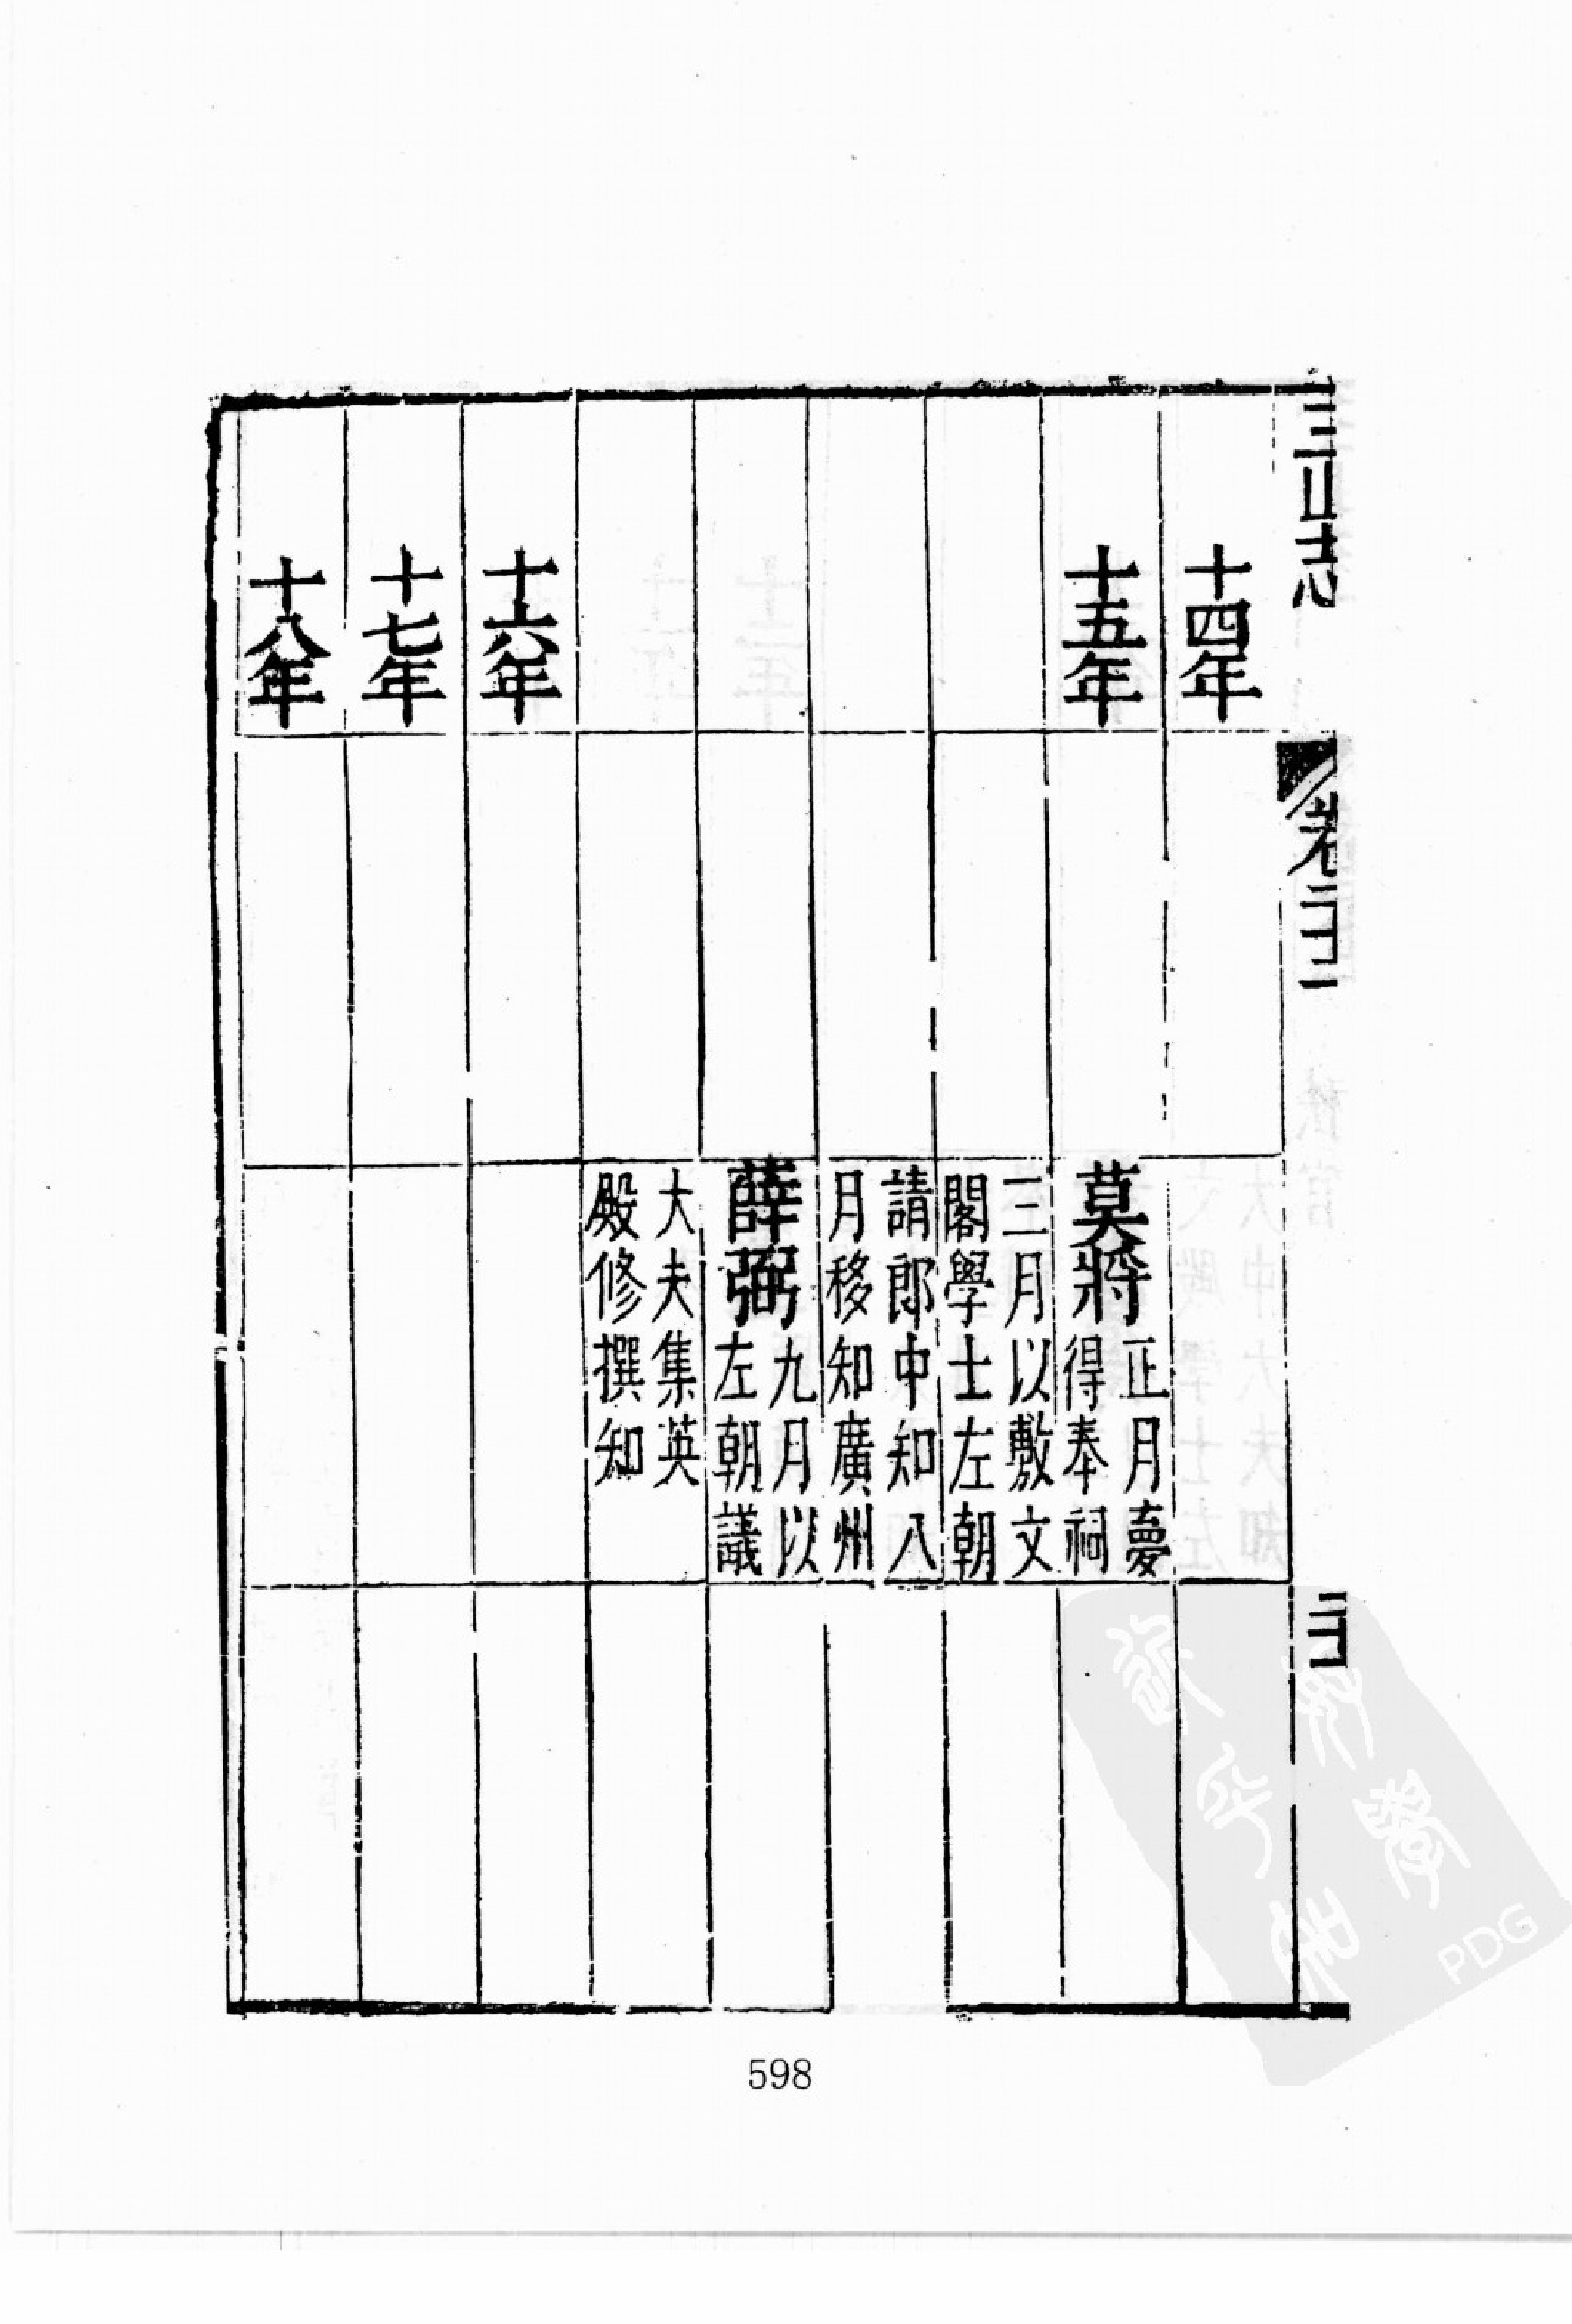 三山志
卷二
三
十四年
十五年
莫將
正月夢
得奉祠
三月以敷文
閣學士左朝
請郎中知八
月移知廣州
薛弼
九月以
左朝議
大夫集英
殿修撰知
十六年
十七年
十八年
598
PDG